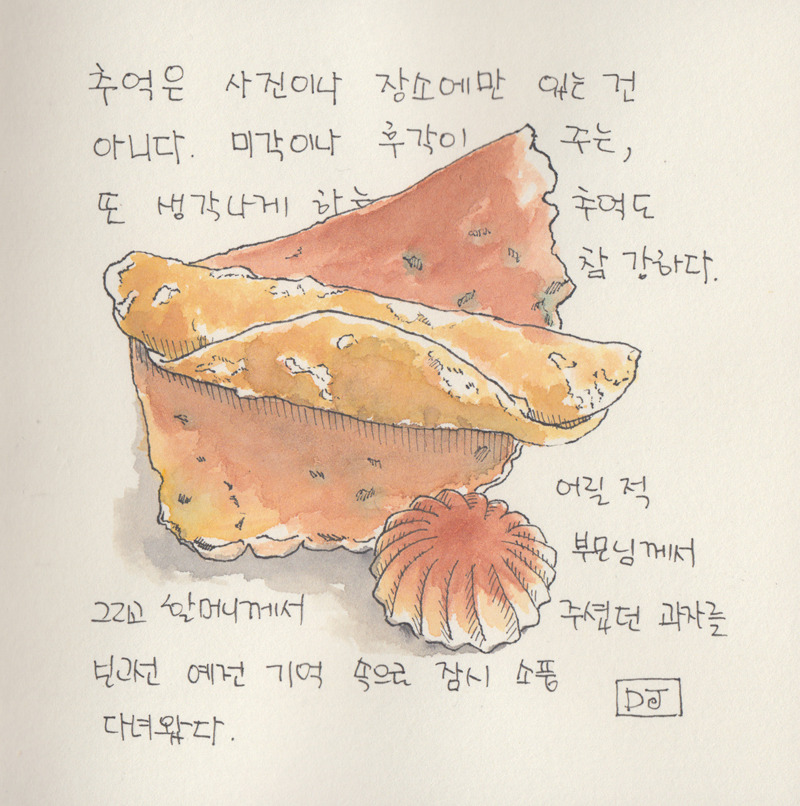 추억은 사진이나 장소에만 있는 건
아니다. 미각이나 후각이 주는,
또 생각나게 하는 추억도
참 강하다.
어릴 적
부모님께서
그리고 할머니께서 주셨던 과자를
보고선 예전 기억 속으로 잠시 소풍
다녀왔다.
DJ